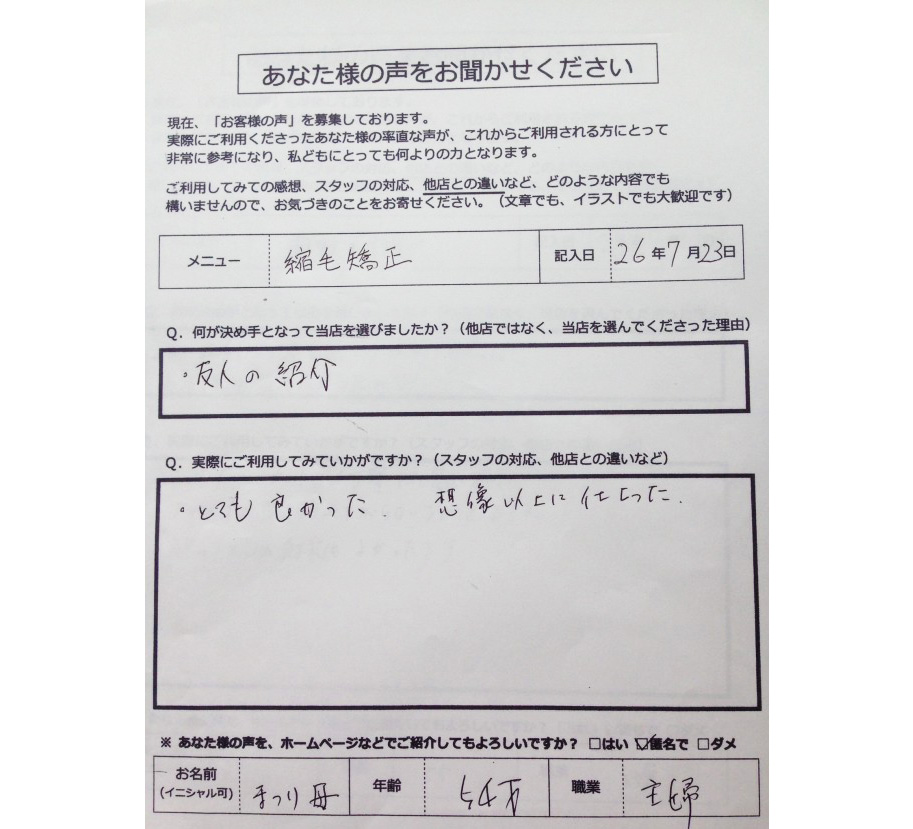 あなた様の声をお聞かせください
現在、「お客様の声」を募集しております。
実際にご利用くださったあなた様の率直な声が、これからご利用される方にとって
非常に参考になり、私どもにとっても何よりの力となります。
ご利用してみての感想、スタッフの対応、他店との違いなど、どのような内容でも
構いませんので、お気づきのことをお寄せください。（文章でも、イラストでも大歓迎です）
メニュー 縮毛矯正 記入日 26年7月23日
Q．何が決め手となって当店を選びましたか？（他店ではなく、当店を選んでくださった理由）
・友人の紹介
Q．実際にご利用してみていかがですか？（スタッフの対応、他店との違いなど）
・とても良かった． 想像以上に仕上った．
※ あなた様の声を、ホームページなどでご紹介してもよろしいですか？ □はい ☑匿名で □ダメ
お名前 年齢 職業 主婦
(イニシャル可)